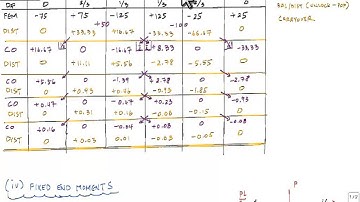 DF 0 2/3 1/3 1/3 2/3 0
+50 -100
FEM -75 +75 -125 +125 -25 +25
DIST 0 +33.33 +16.67 -33.33 -66.67 0
CO +16.67 0 -16.67 +8.33 0 -33.33
DIST 0 +11.11 +5.56 -2.78 -5.55 0
CO +5.56 0 -1.39 +2.78 0 -2.78
DIST 0 +0.93 +0.46 -0.93 -1.85 0
CO +0.47 0 -0.47 +0.23 0 -0.93
DIST 0 +0.31 +0.16 -0.08 -0.15 0
CO +0.16 0 -0.04 +0.08 0 -0.08
DIST 0 +0.03 0.01 -0.03 -0.05 0
CARRYOVER
(iv) FIXED END MOMENTS
PL
P